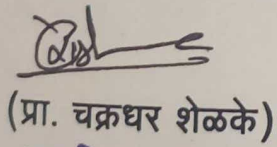 (प्रा. चक्रधर शेळके)